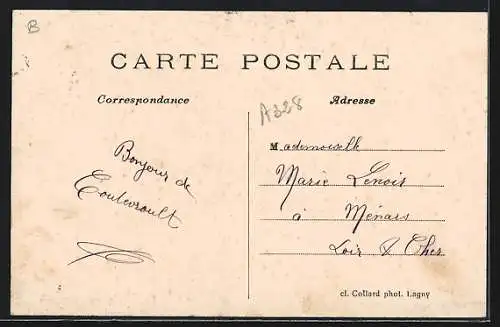 B
CARTE POSTALE
Correspondance
A328
Adresse
Bonjour de
Coulevroult
Mademoiselle
Marie Lenois
à Ménars
Loir & Cher
cl. Collard phot. Lagny